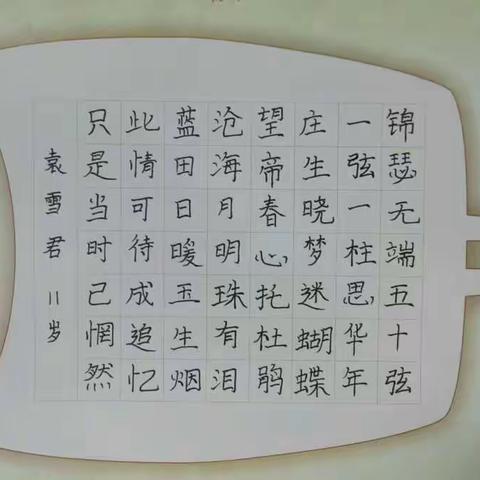 锦瑟无端五十弦
一弦一柱思华年
庄生晓梦迷蝴蝶
望帝春心托杜鹃
沧海月明珠有泪
蓝田日暖玉生烟
此情可待成追忆
只是当时己惘然
袁雪君 11岁